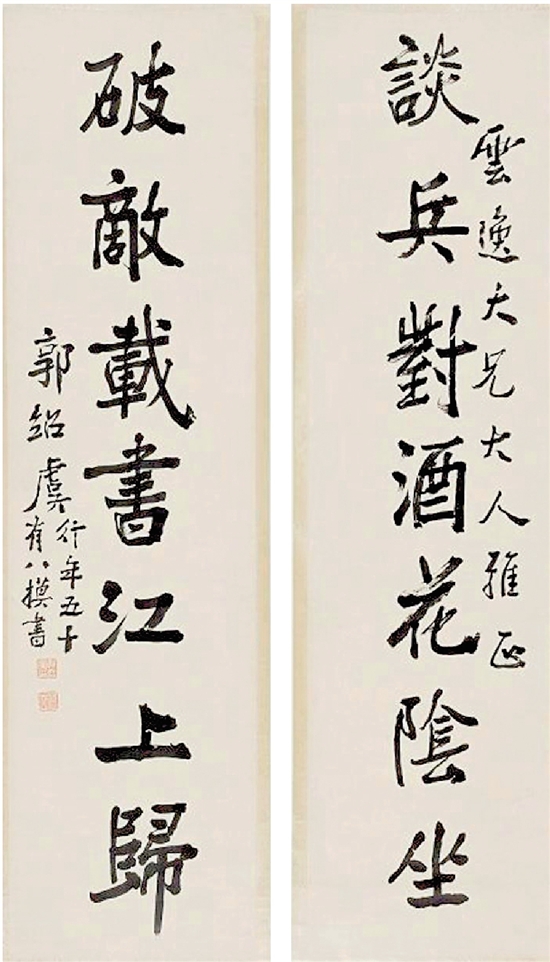 談兵對酒花陰坐
雲逸大兄大人雅正
破敵載書江上歸
郭紹虞行年五十
有八摸書